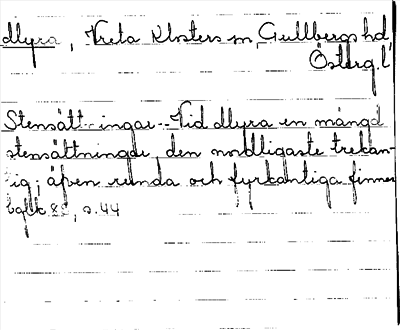 dlyra, Vreta Klosters sn, Gullbergs hd
Österg. l
Stensätt ingar. Vid dlyra en mängd
stensättningar, den nordligaste trekan-
ig; äfven runda och fyrkantiga finnes
s. 44